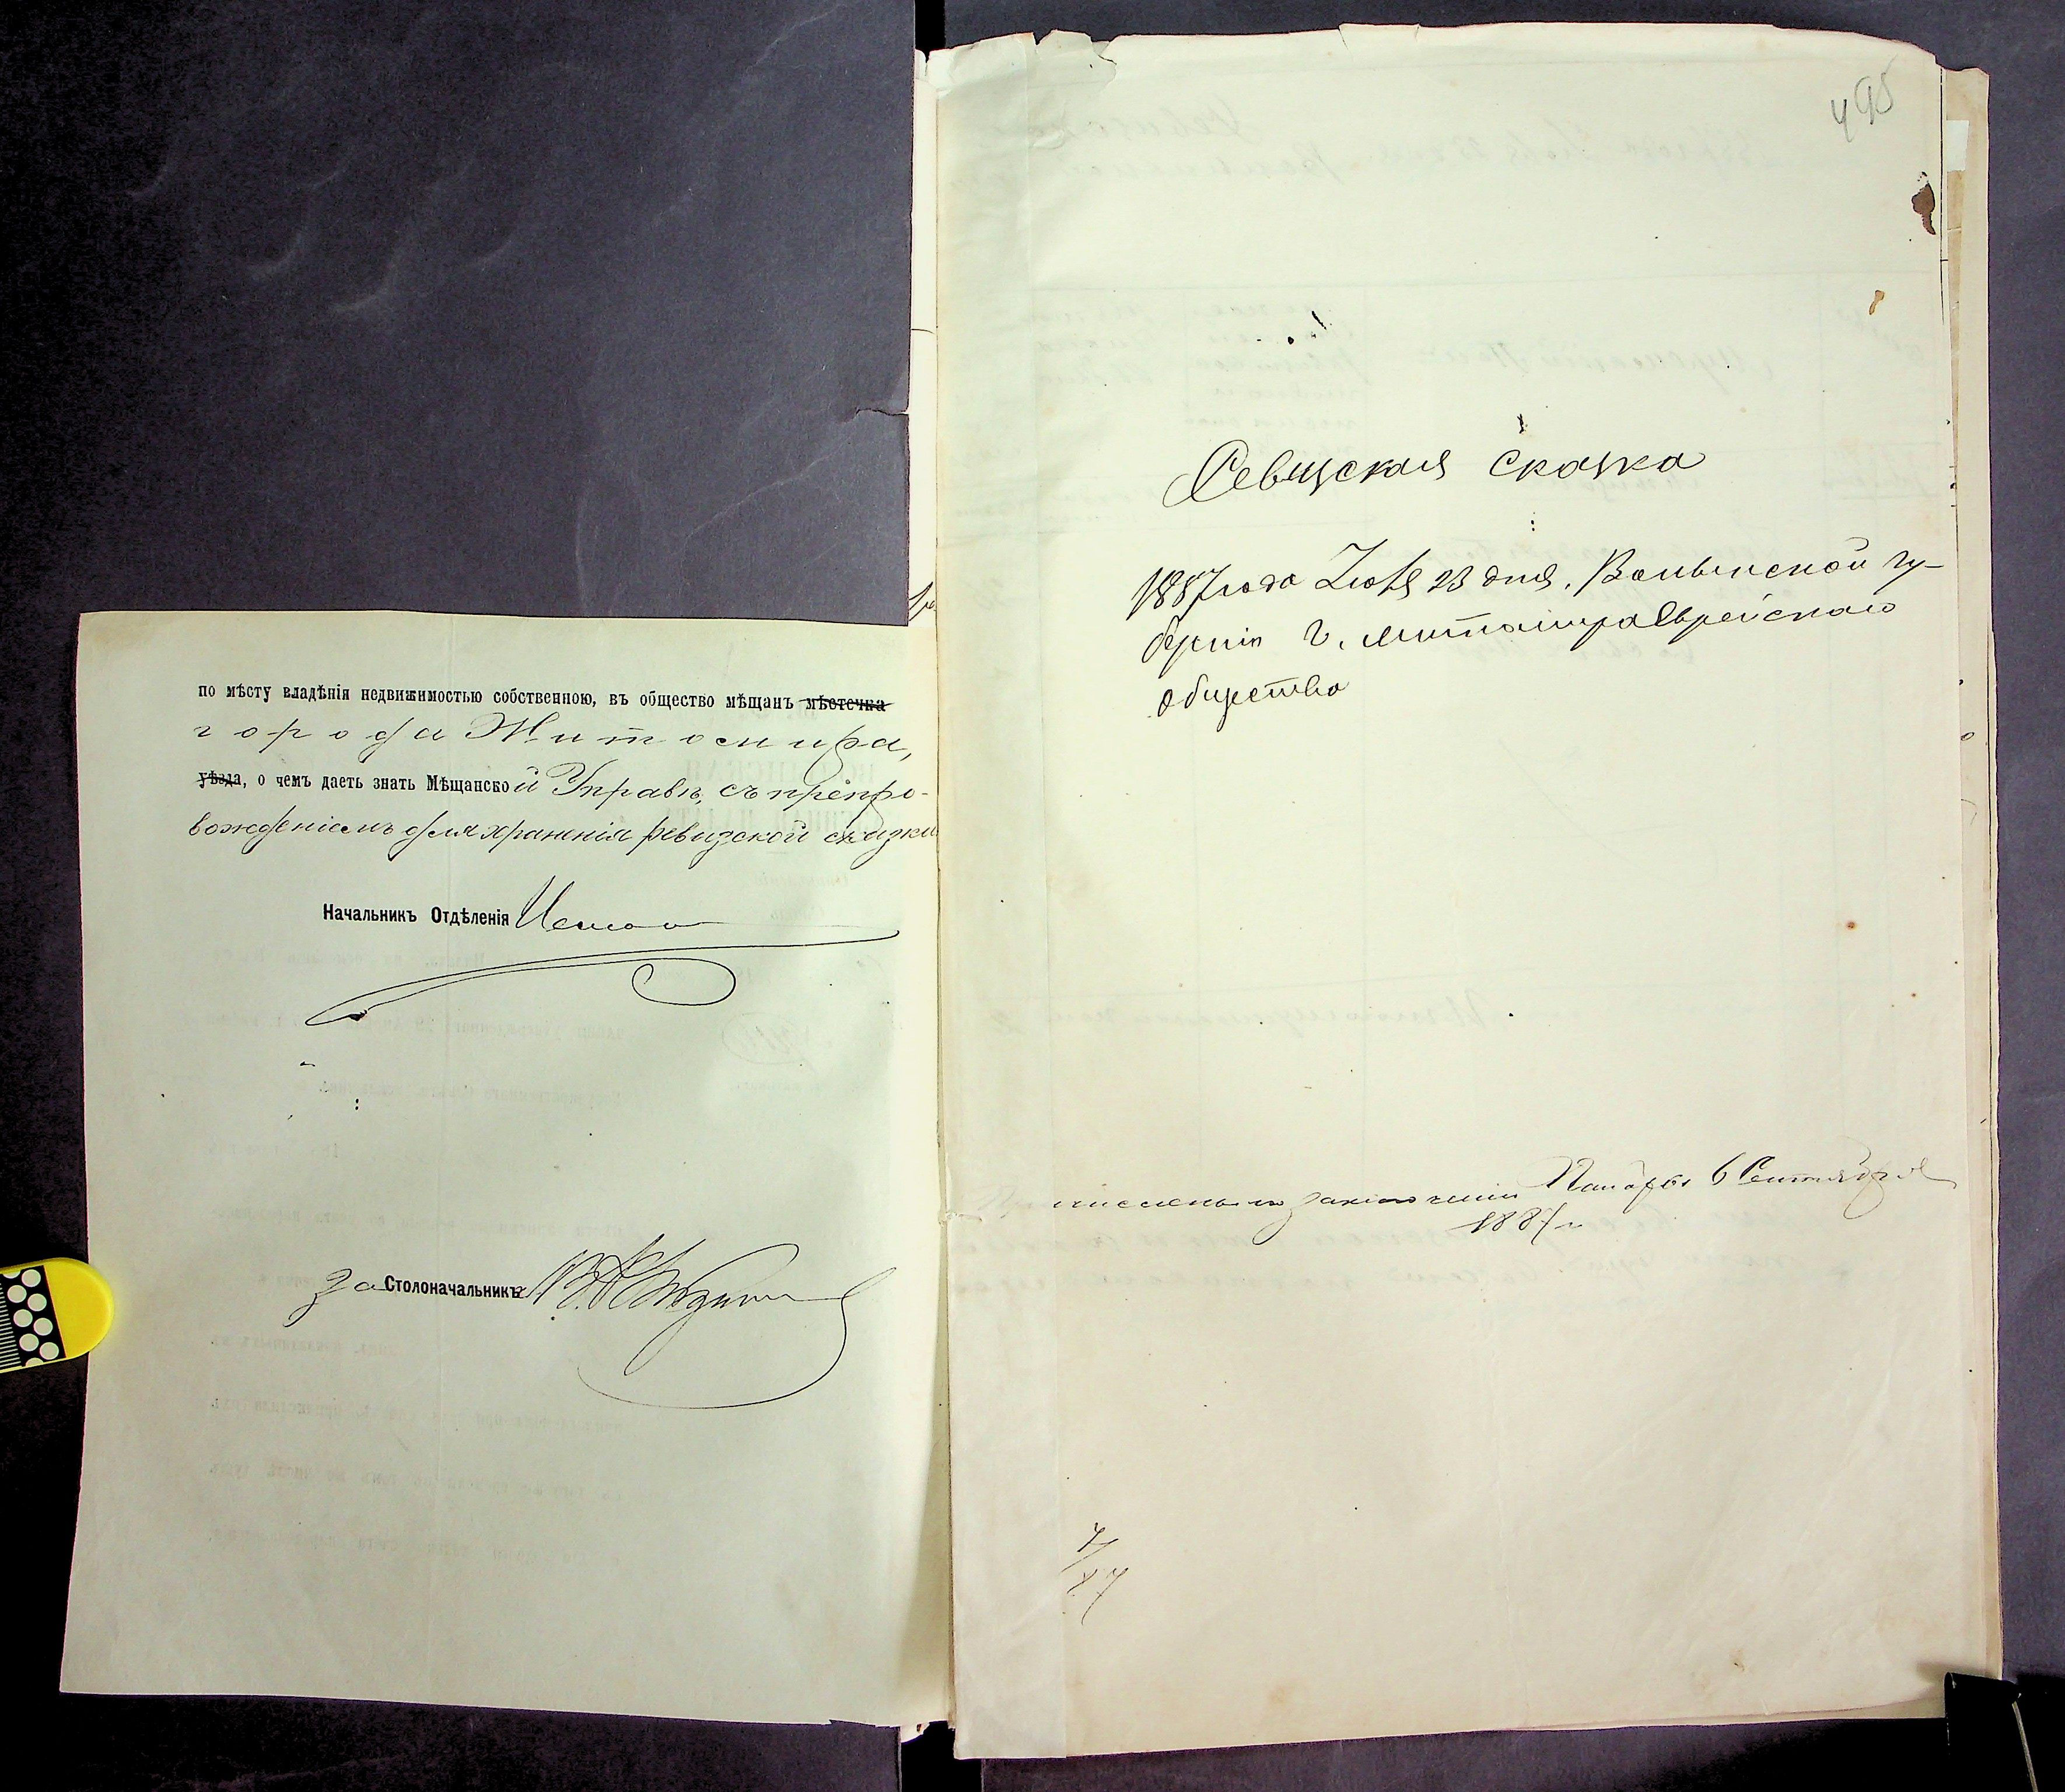 по мѣсту владѣнія недвижимостью собственною, въ общество мѣщанъ мѣстечка
города Житомира,
уѣзда, о чемъ даетъ знать Мѣщанской Управѣ, съ препро-
вожденіемъ для храненія ревизской сказки
Начальникъ Отдѣленія
За Столоначальника
495
Ревизская сказка
1887 года Іюля 23 дня, Волынской гу-
берніи г. Житомира Еврейскаго
общества
по заключенію Палаты 6 Сентября
1887 г.